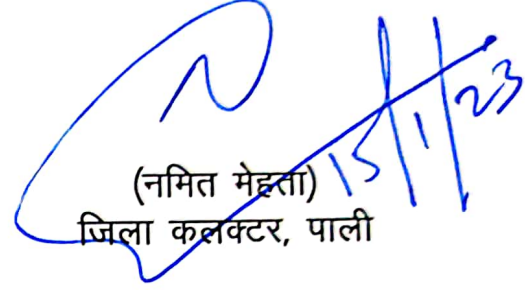 15/1/23
(नमित मेहता)
जिला कलक्टर, पाली